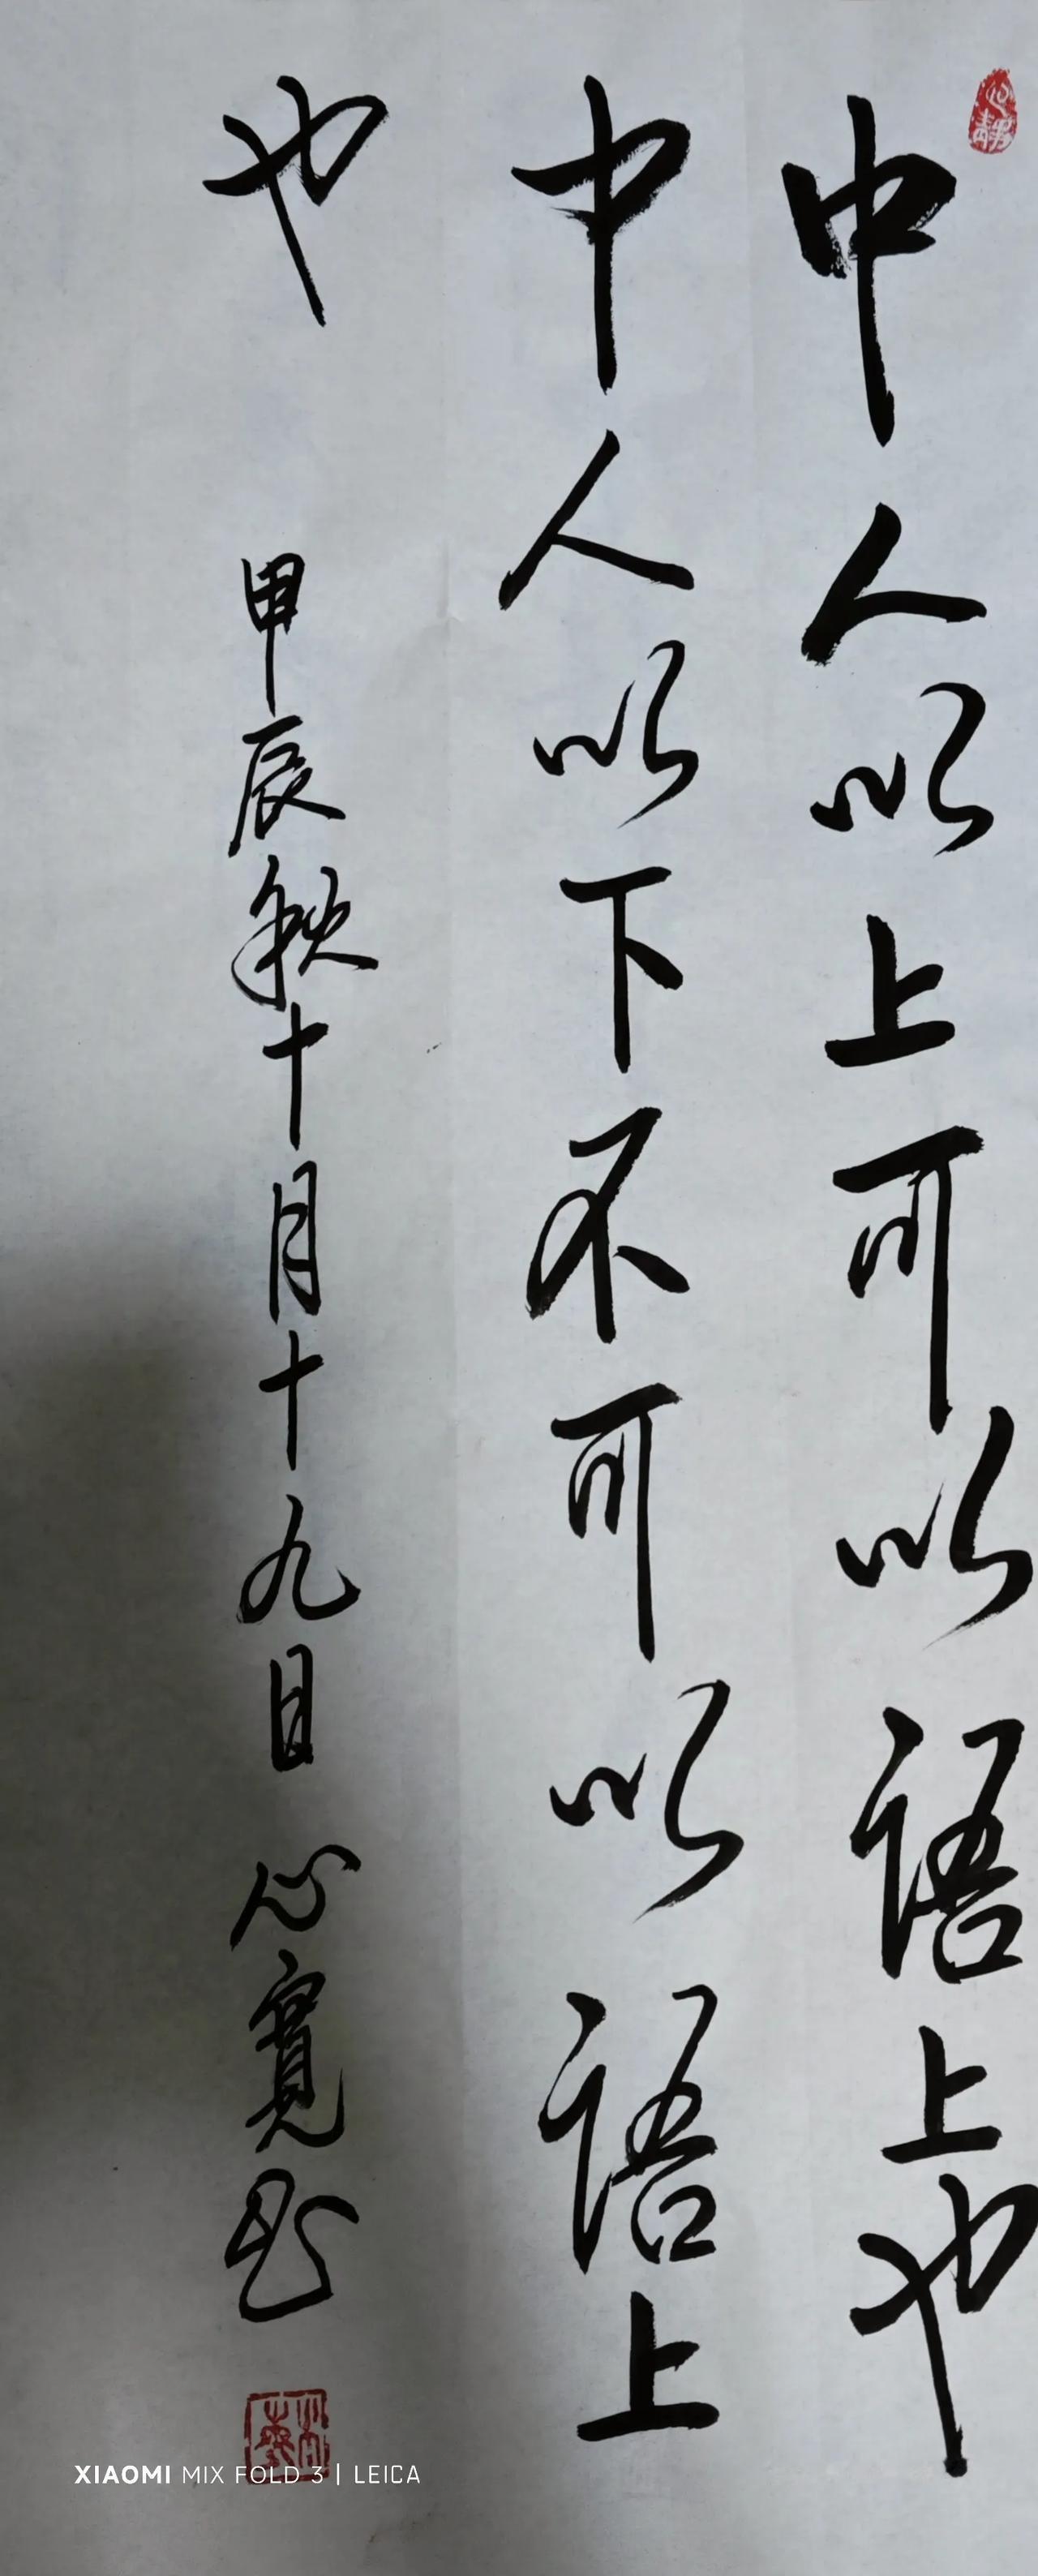 中人以上可以语上也
中人以下不可以语上
也
甲辰秋十月十九日 心寬书
心静
XIAOMI MIX FOLD 3 | LEICA